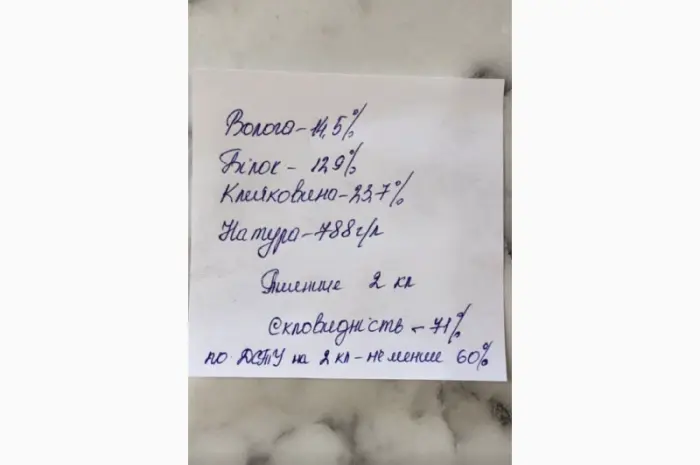 Волога - 14,5%
Білок - 12,9%
Клейковина - 23,7%
Натура - 788 г/л
Пшениця 2 кл
Скловидність - 71%
по ДСТУ на 2 кл - не менше 60%